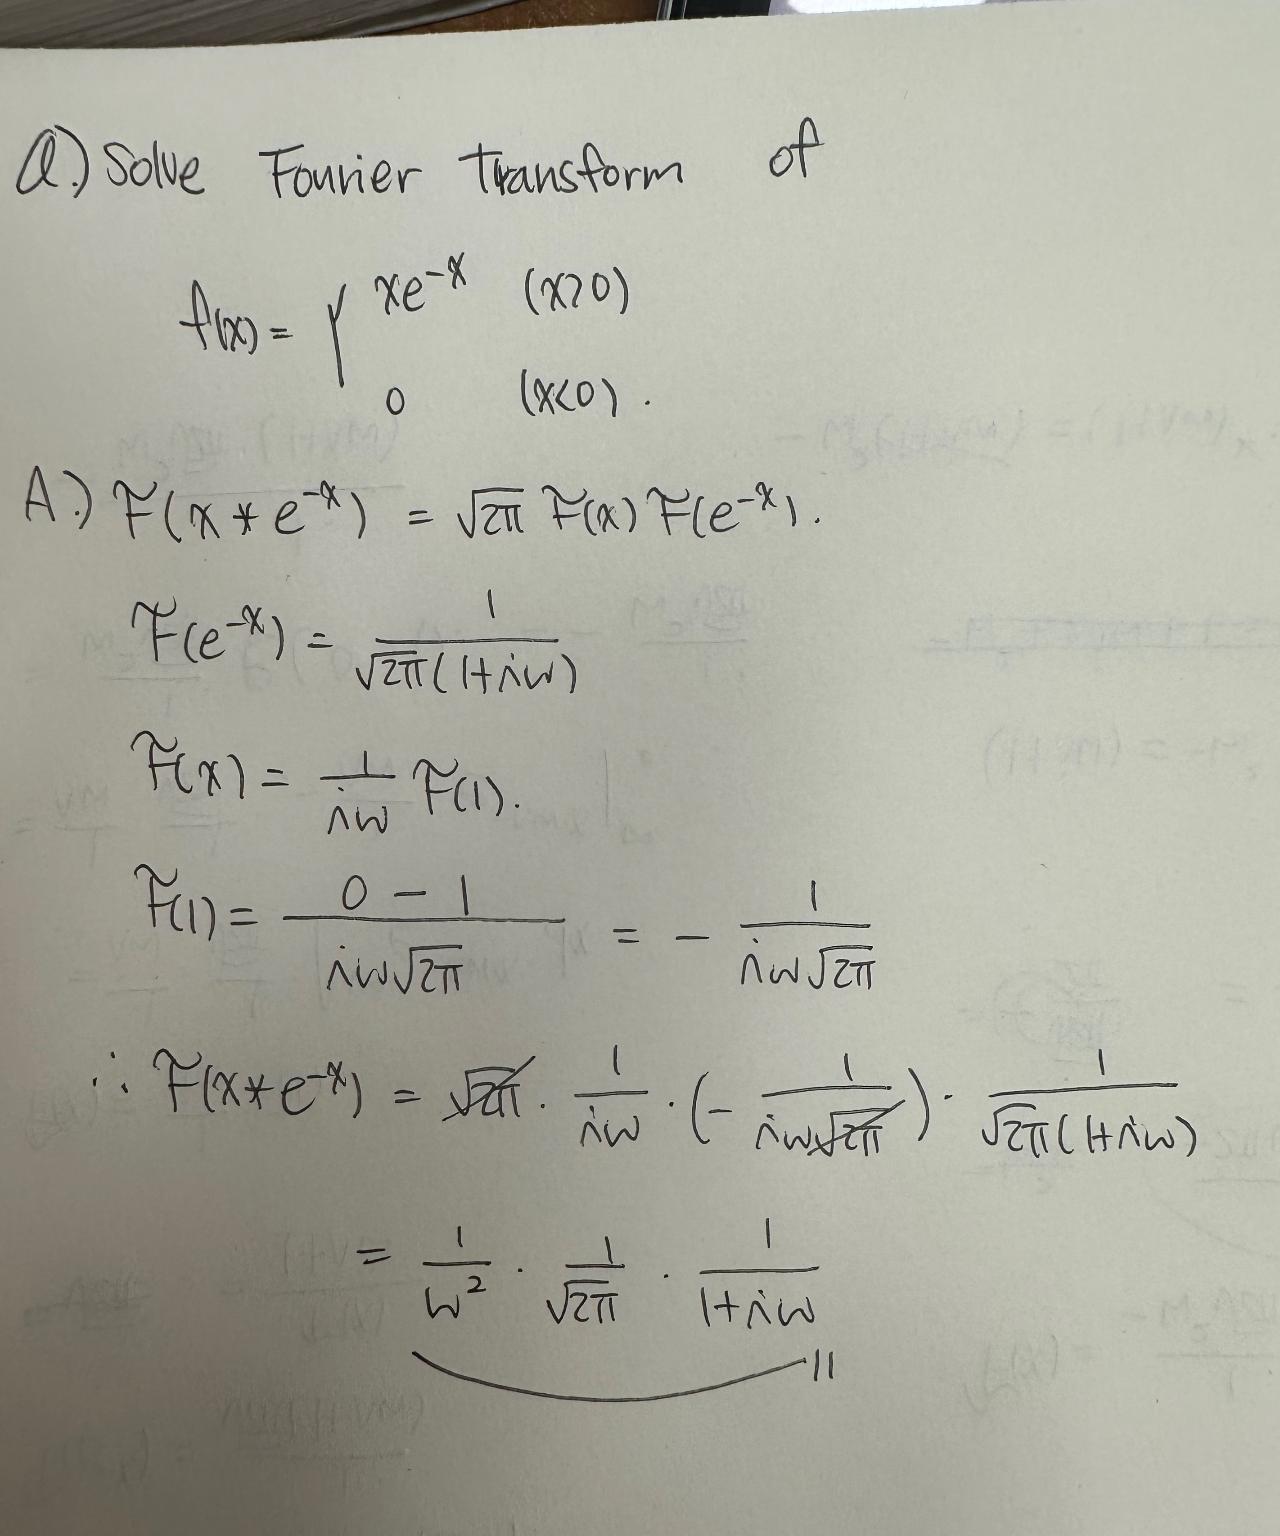 Q.) Solve Fourier Transform of
f(x) = { xe^{-x} (x>0)
0 (x<0).
A.) F(x * e^{-x}) = √2π F(x) F(e^{-x}).
F(e^{-x}) = 1 / √2π(1+iw)
F(x) = 1/iw F(1).
F(1) = 0 - 1 / iw√2π = - 1 / iw√2π
∴ F(x*e^{-x}) = √2π · 1/iw · (- 1/iw√2π) · 1/√2π(1+iw)
= 1/w² · 1/√2π · 1/1+iw //